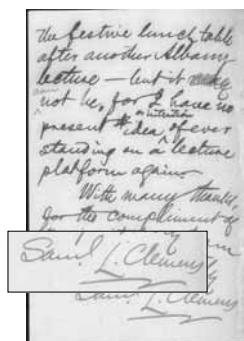 the festive lunch table
after another Albany
lecture — but it may
not be, for I have no
or intention
present idea of ever
standing on a lecture
platform again.
With many thanks
for the compliment of
Saml. L. Clemens
Saml. L. Clemens